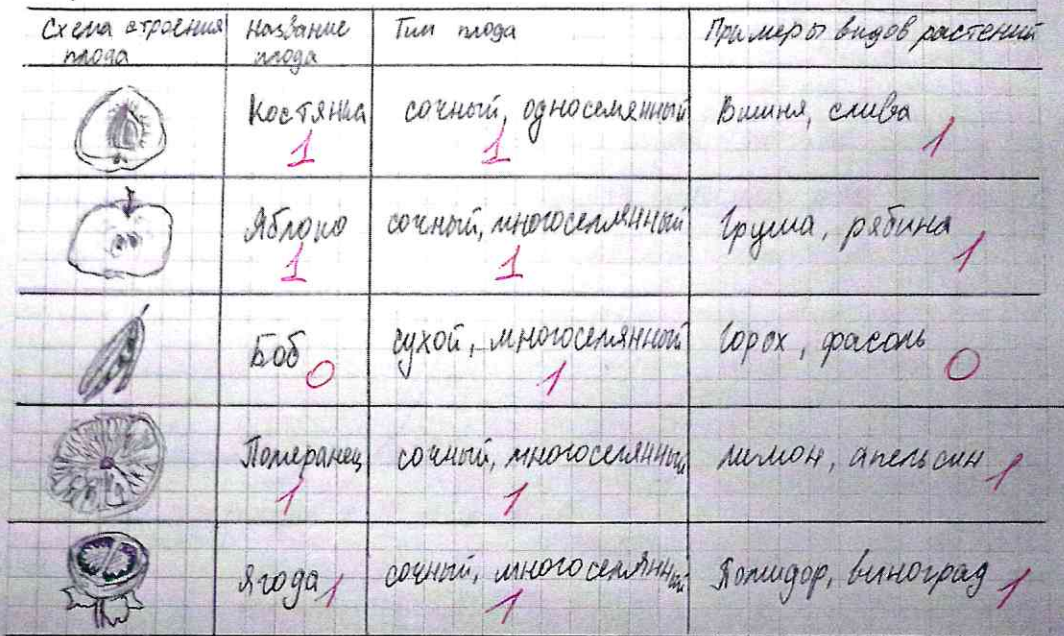 Схема строения плода
Название плода
Тип плода
Примеры видов растений
Костянка
1
сочный, односемянный
1
Вишня, слива
1
Яблоко
1
сочный, многосемянный
1
Груша, рябина
1
Боб
0
сухой, многосемянный
1
Горох, фасоль
0
Померанец
1
сочный, многосемянный
1
лимон, апельсин
1
Ягода
1
сочный, многосемянный
1
Помидор, виноград
1